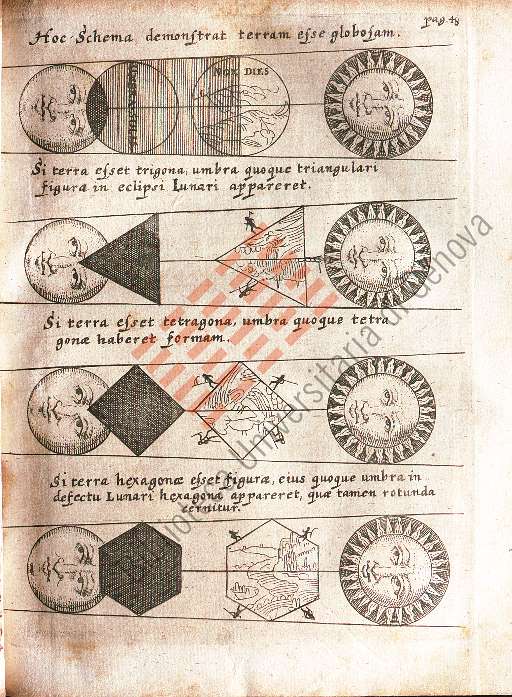 pag. 48
Hoc Schema demonstrat terram esse globosam.
NOX DIES
Si terra esset trigona, umbra quoque triangulari
figura in eclipsi Lunari appareret.
Si terra esset tetragona, umbra quoque tetra
gonæ haberet formam.
Si terra hexagonæ esset figuræ, eius quoque umbra in
defectu Lunari hexagona appareret, quæ tamen rotunda
cernitur.
Universitaria di Genova